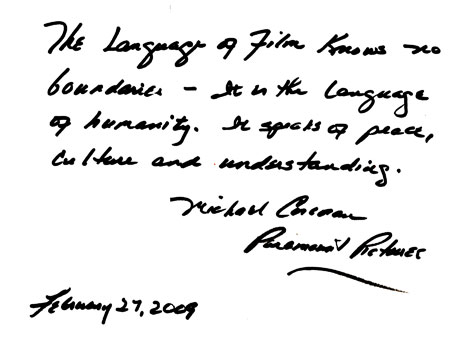 The Language of Film Knows no
boundaries - It is the language
of humanity. It speaks of peace,
culture and understanding.
Michael Corcoran
Paramount Pictures
February 27, 2009